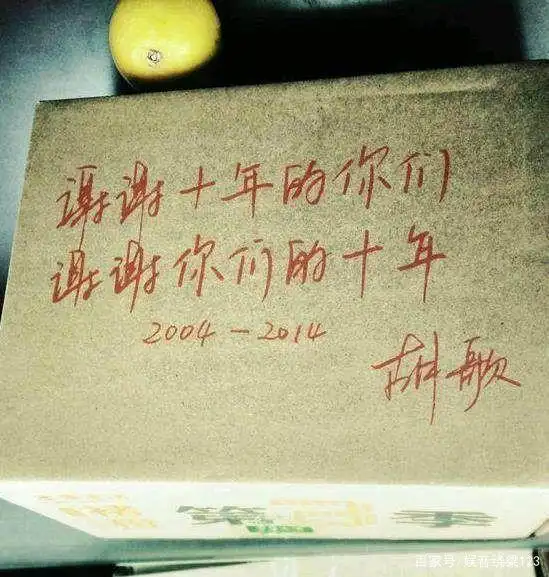 谢谢十年的你们
谢谢你们的十年
2004-2014
胡歌
百家号/娱音绕梁123